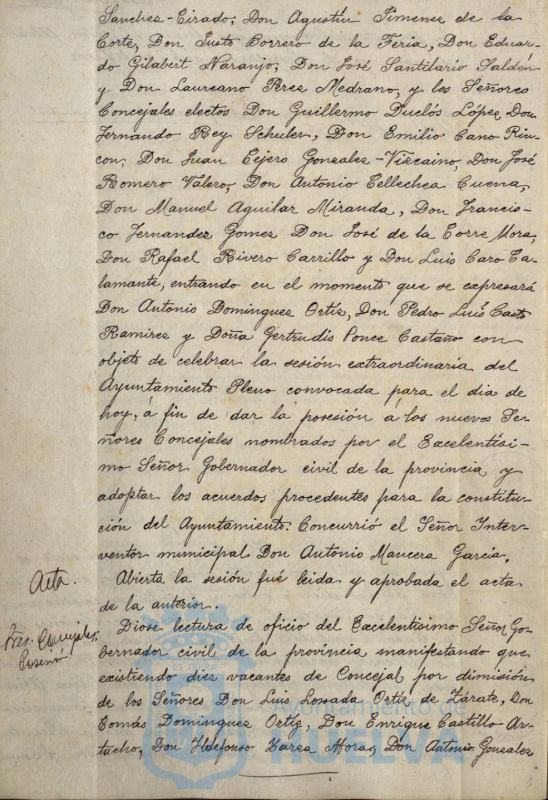 Sanchez-Tirado; Don Agustín Jimenez de la
Corte, Don Justo Borrero de la Feria, Don Eduar-
do Gilabert Naranjo; Don José Santilario Saldén
y Don Laureano Perez Medrano, y los Señores
Concejales electos Don Guillermo Duclós López, Don
Fernando Rey Schuler, Don Emilio Cano Rin-
con, Don Juan Tejero Gonzalez-Viscaino, Don José
Romero Valero, Don Antonio Tellechea Cuena,
Don Manuel Aguilar Miranda, Don Francis-
co Fernandez Gomez Don José de la Torre Mora,
Don Rafael Rivero Carrillo y Don Luis Caro Ta-
lamante, entrando en el momento que se expresará
Don Antonio Dominguez Ortíz, Don Pedro Luis Casto
Ramirez y Doña Gertrudis Ponce Castaño con
objeto de celebrar la sesión extraordinaria del
Ayuntamiento Pleno convocada para el dia de
hoy, á fin de dar la posesión á los nuevos Se-
ñores Concejales nombrados por el Excelentísi-
mo Señor Gobernador civil de la provincia y
adoptar los acuerdos procedentes para la constitu-
ción del Ayuntamiento. Concurrió el Señor Inter-
ventor municipal Don Antonio Mancera García.
Acta.
Abierta la sesión fué leida y aprobada el acta
de la anterior.
Concejales
Posesión.
Diose lectura de oficio del Excelentisimo Señor Go-
bernador civil de la provincia manifestando que
existiendo diez vacantes de Concejal por dimisión
de los Señores Don Luis Lossada Ortíz de Zárate, Don
Tomás Dominguez Ortíz, Don Enrique Castillo Ar-
tacho, Don Ildefonso Zarza Moras, Don Antonio Gonzalez
Ayuntamiento de
HUELVA